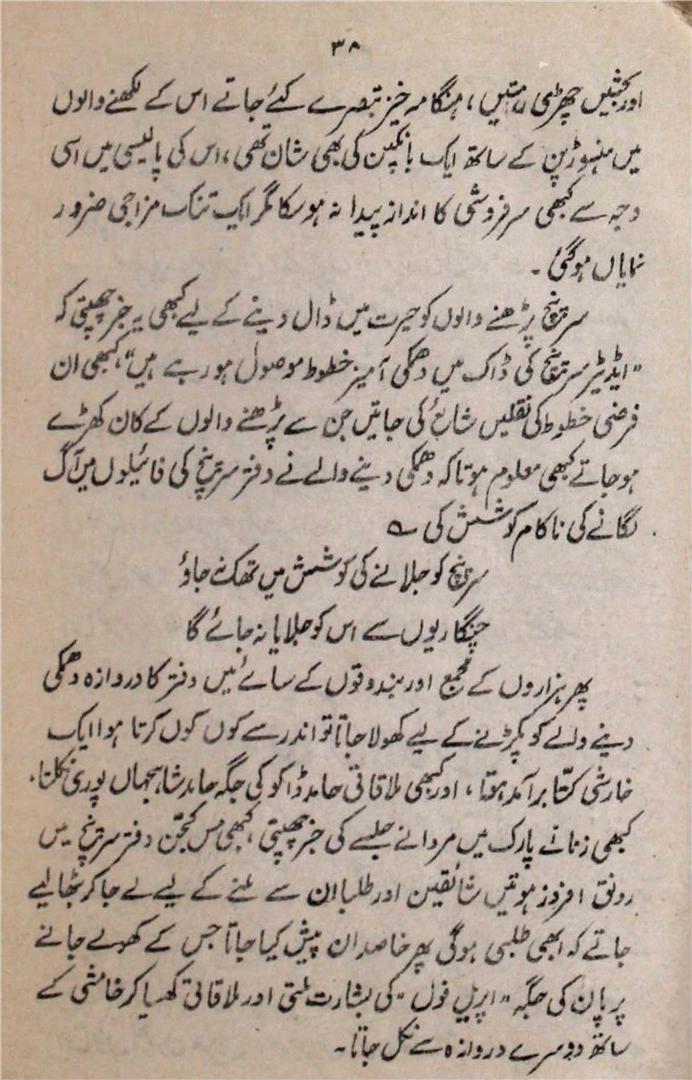 ۳۸
اور بحثیں چھڑی رہتیں، ہنگامہ خیز تبصرے کئے جاتے اس کے لکھنے والوں
میں منہوڑپن کے ساتھ ایک بانکپن کی بھی شان تھی، اس کی پالیسی میں اسی
وجہ سے کبھی سرفروشی کا انداز پیدا نہ ہو سکا مگر ایک تنک مزاجی ضرور
نمایاں ہو گئی۔
سرپنچ پڑھنے والوں کو حیرت میں ڈال دینے کے لیے کبھی یہ خبر چھپتی کہ
"ایڈیٹر سرپنچ کی ڈاک میں دھمکی آمیز خطوط موصول ہو رہے ہیں"، کبھی ان
فرضی خطوط کی نقلیں شایع کی جاتیں جن سے پڑھنے والوں کے کان کھڑے
ہو جاتے کبھی معلوم ہوتا کہ دھمکی دینے والے نے دفتر سرپنچ کی فائیلوں میں آگ
لگانے کی ناکام کوشش کی ؎
سرپنچ کو جلانے کی کوشش میں تھک نہ جاؤ
چنگاریوں سے اس کو جلایا نہ جائے گا
پھر ہزاروں کے مجمع اور بندوقوں کے سائے میں دفتر کا دروازہ دھمکی
دینے والے کو پکڑنے کے لیے کھولا جاتا تو اندر سے کوں کوں کرتا ہوا ایک
خارشی کتّا برآمد ہوتا، اور کبھی ملاقاتی حامد ڈاکو کی جگہ حامد شاہجہاں پوری نکلتا۔
کبھی زنانے پارک میں مردانے جلسے کی خبر چھپتی، کبھی مس کجّن دفتر سرپنچ میں
رونق افروز ہوتیں شائقین اور طلبا ان سے ملنے کے لیے لے جا کر بٹھا لیے
جاتے کہ ابھی طلبی ہوگی پھر خاصدان پیش کیا جاتا جس کے کھولے جانے
پر پان کی جگہ "اپریل فول" کی بشارت ملتی اور ملاقاتی کھسیا کر خامشی کے
ساتھ دوسرے دروازہ سے نکل جاتا۔